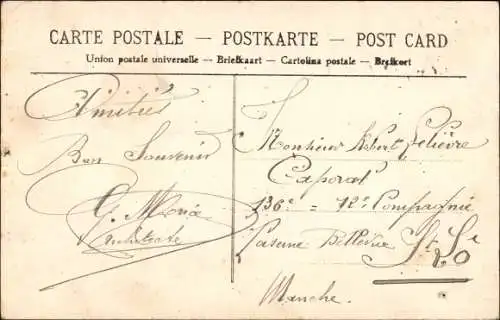 CARTE POSTALE — POSTKARTE — POST CARD
Union postale universelle — Briefkaart — Cartolina postale — Brefkort
Amitiés
Bon Souvenir
G.
Monsieur Robert Lelièvre
Caporal
136e = 12e Compagnie
Caserne Bellevue St Lo
Manche.